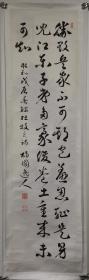 勝敗兵家不可期包羞忍恥是男
兒江東子弟多豪俊卷土重来未
可知 昭和戊辰春録杜牧之詩